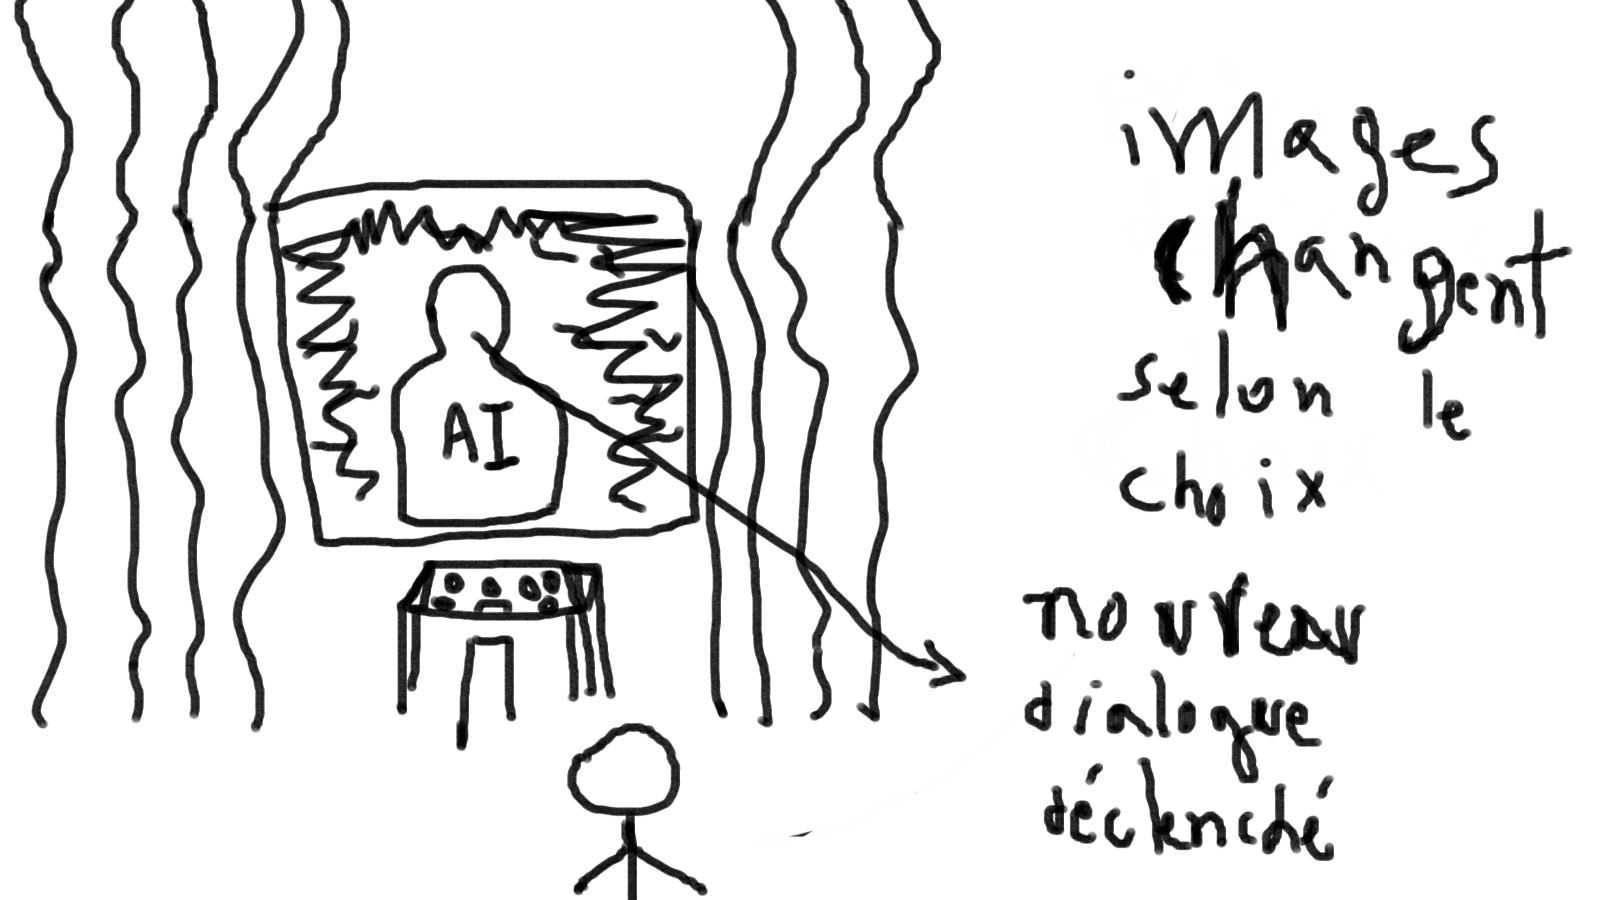 AI
images
changent
selon le
choix
nouveau
dialogue
déclenché